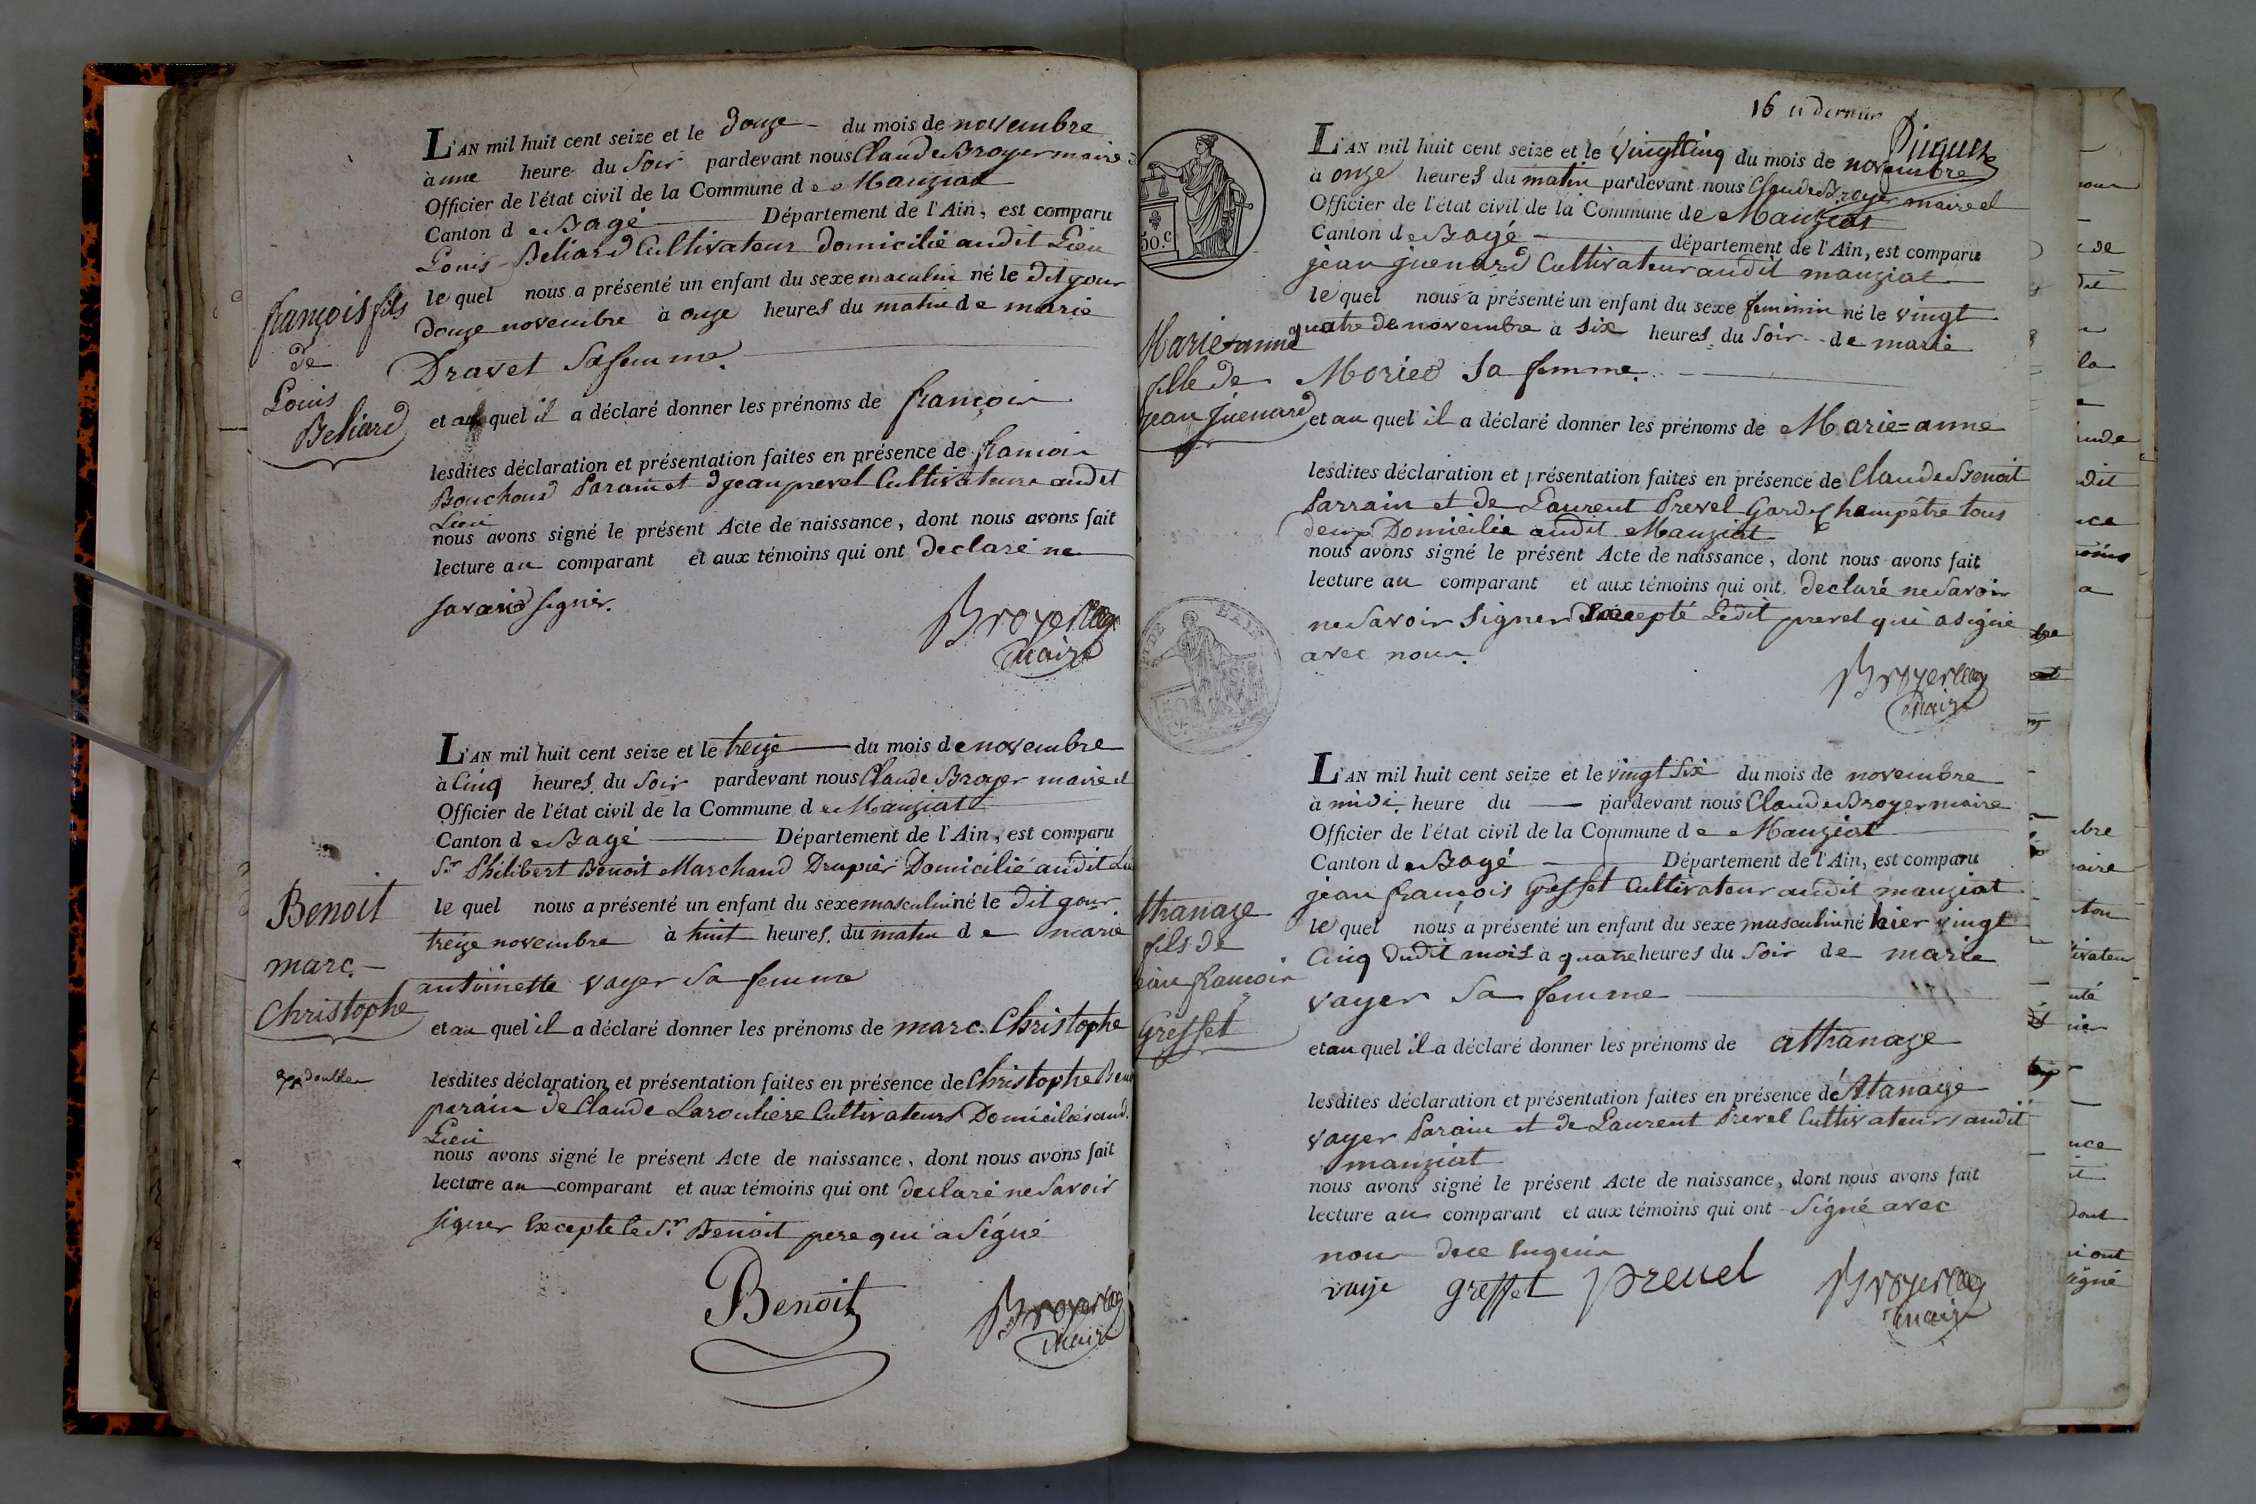 L'AN mil huit cent seize et le douze - du mois de novembre
à une heure du Soir pardevant nous Claude Broyer maire
Officier de l'état civil de la Commune de Manziat
Canton de Bagé Département de l'Ain, est comparu
Louis Beliard Cultivateur Domicilié audit Lieu
le quel nous a présenté un enfant du sexe masculin né le dit jour
douze novembre à onze heures du matin de marie
Dravet Sa femme.
et au quel il a déclaré donner les prénoms de françois
lesdites déclaration et présentation faites en présence de françois
Bouchoud Parain et d jean prevel Cultivateurs audit
Lieu
nous avons signé le présent Acte de naissance, dont nous avons fait
lecture au comparant et aux témoins qui ont declaré ne
savoir signer.
Broyer
maire
françois fils
de
Louis
Beliard
L'AN mil huit cent seize et le treize du mois de novembre
à Cinq heures du Soir pardevant nous Claude Broyer maire et
Officier de l'état civil de la Commune de Manziat
Canton de Bagé Département de l'Ain, est comparu
Sr Philibert Benoit Marchand Drapier Domicilié audit Lieu
le quel nous a présenté un enfant du sexe masculin né le dit jour
treize novembre à huit heures du matin de marie
antoinette vayer Sa femme
et au quel il a déclaré donner les prénoms de marc. Christophe
lesdites déclaration et présentation faites en présence de Christophe
parain de Claude Laroulière Cultivateurs Domiciliés aud.
Lieu
nous avons signé le présent Acte de naissance, dont nous avons fait
lecture au comparant et aux témoins qui ont declaré ne Savoir
signer Excepté le Sr Benoit pere qui a Signé
Benoit
Broyer
maire
Benoit
marc.
Christophe
16 et dernier
L'AN mil huit cent seize et le vingt Cinq du mois de novembre
à onze heures du matin pardevant nous Claude Broyer maire et
Officier de l'état civil de la Commune de Manziat
Canton de Bagé département de l'Ain, est comparu
jean juenard Cultivateur audit manziat
le quel nous a présenté un enfant du sexe feminin né le vingt
quatre de novembre à six heures du Soir de marie
Morier Sa femme.
et au quel il a déclaré donner les prénoms de Marie=anne
lesdites déclaration et présentation faites en présence de Claude Benoit
Parrain et de Laurent Prevel Garde Champêtre tous
deux Domicilié audit Manziat
nous avons signé le présent Acte de naissance, dont nous avons fait
lecture au comparant et aux témoins qui ont declaré ne Savoir
ne Savoir Signer Excepté Ledit prevel qui a signé
avec nous.
Broyer
maire
50.c
Marie=anne
fille de
jean juenard
L'AN mil huit cent seize et le vingt Six du mois de novembre
à midi heure du pardevant nous Claude Broyer maire
Officier de l'état civil de la Commune de Manziat
Canton de Bagé Département de l'Ain, est comparu
jean françois Gresset Cultivateur audit manziat
le quel nous a présenté un enfant du sexe masculin né hier vingt
Cinq dudit mois à quatre heures du Soir de marie
vayer Sa femme
et au quel il a déclaré donner les prénoms de athanaze
lesdites déclaration et présentation faites en présence de Atanaize
vayer Parain et de Laurent Prevel Cultivateurs audit
manziat
nous avons signé le présent Acte de naissance, dont nous avons fait
lecture au comparant et aux témoins qui ont Signé avec
nous de ce enquis
gresset preuel Broyer
maire
thanaze
fils de
françois
Gresset